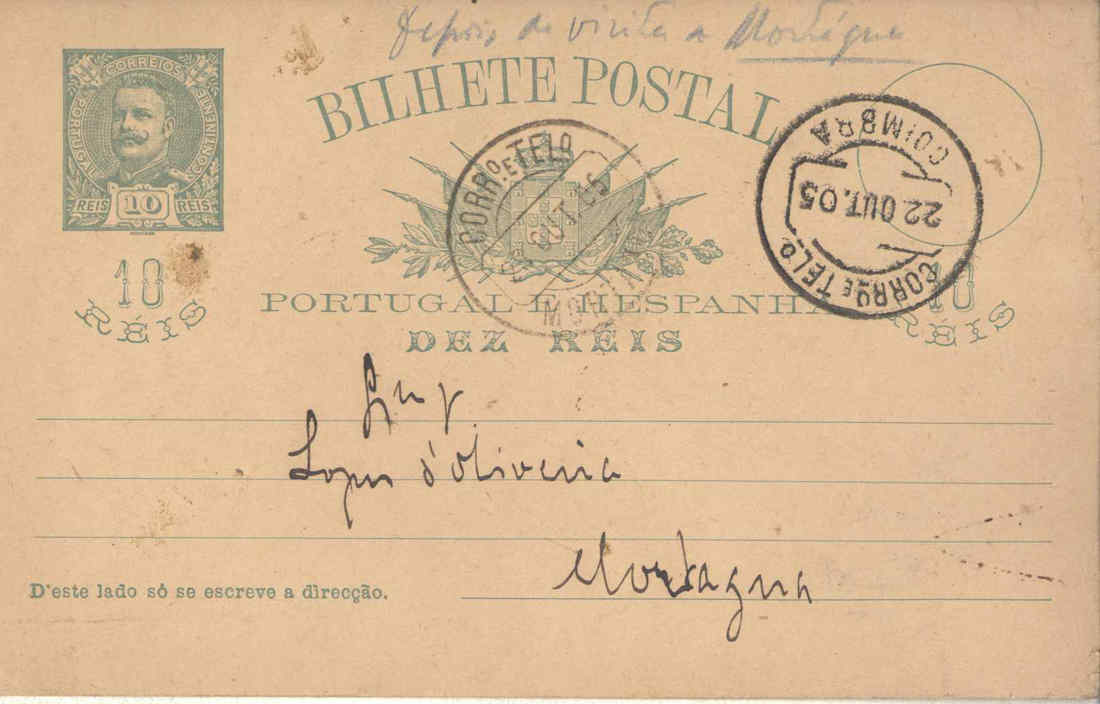 Depois da visita a Mortágua
CORREIOS
PORTUGAL CONTINENTE
REIS 10 REIS
BILHETE POSTAL
CORRº E TELº
OUT. 05
COIMBRA
22 OUT. 05
CORRº E TELº
10
RÉIS
PORTUGAL E HESPANHA
DEZ RÉIS
10
RÉIS
Lopes d'Oliveira
Mortagua
D'este lado só se escreve a direcção.